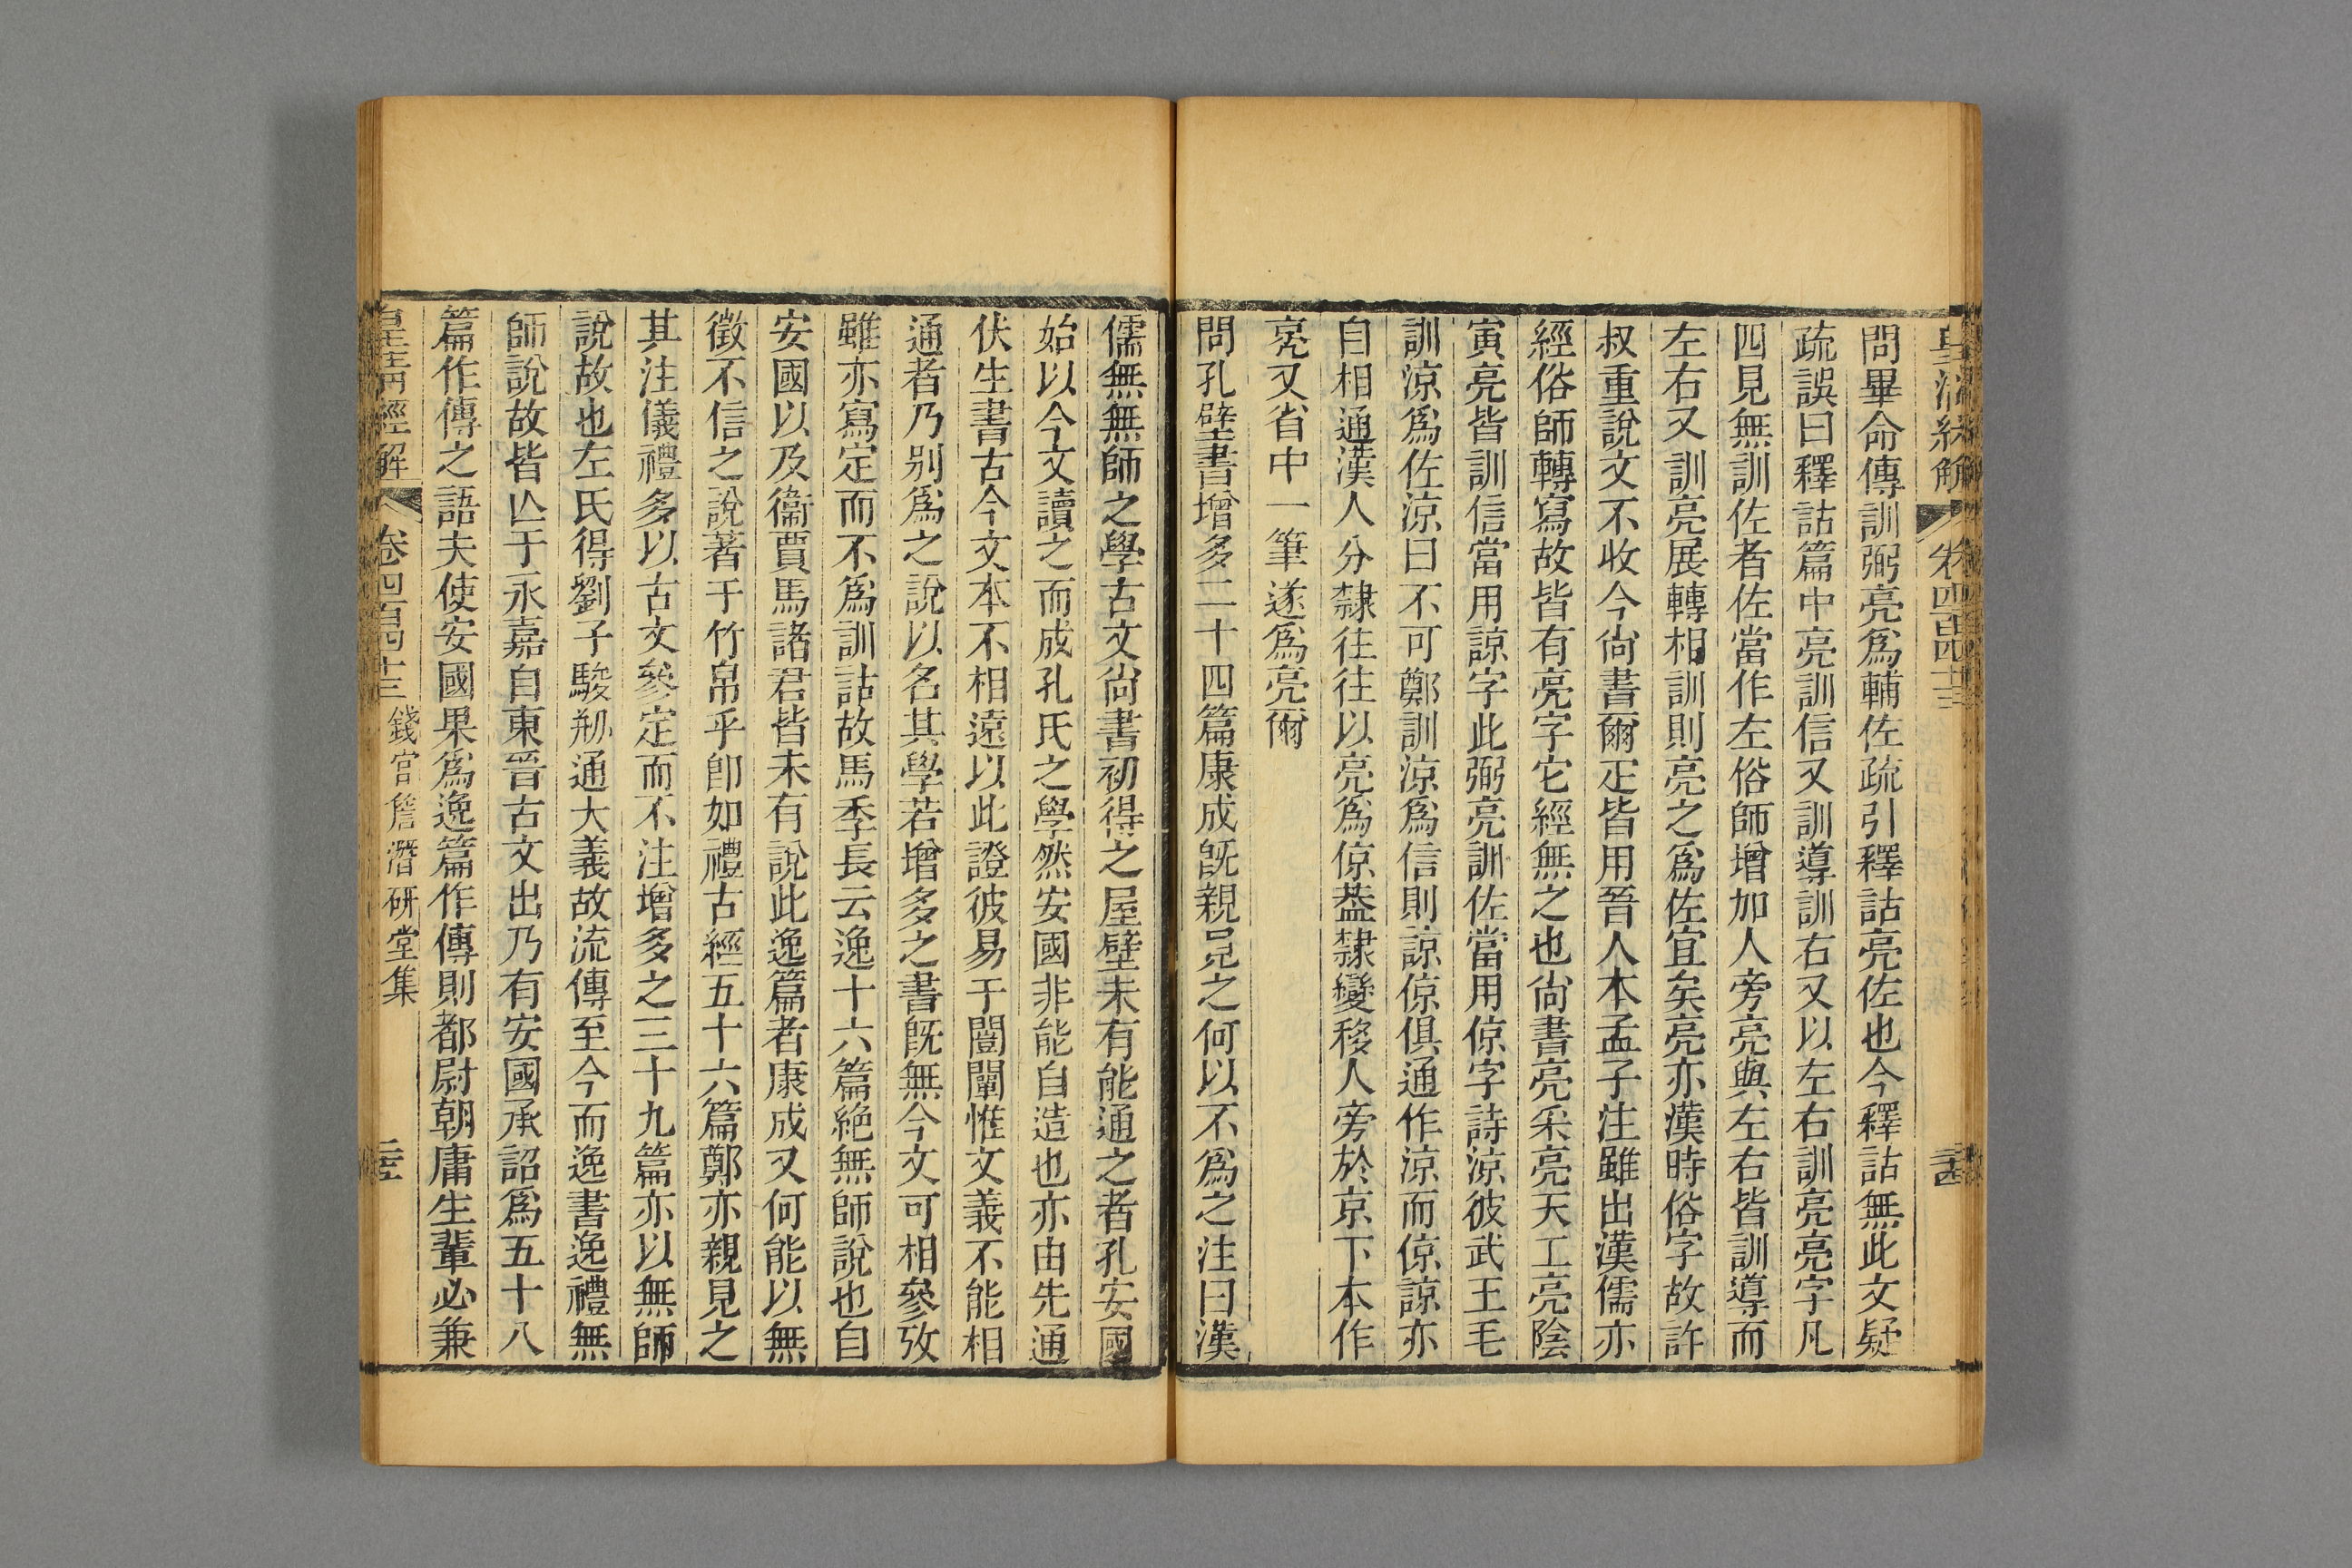 皇清經解 卷四百四十三 二十四
問畢命傳訓弼亮爲輔佐疏引釋詁亮佐也今釋詁無此文疑
疏誤曰釋詁篇中亮訓信又訓導訓右又以左右訓亮亮字凡
四見無訓佐者佐當作左俗師增加人旁亮與左右皆訓導而
左右又訓亮展轉相訓則亮之爲佐宜矣亮亦漢時俗字故許
叔重說文不收今尙書爾疋皆用晉人本孟子注雖出漢儒亦
經俗師轉寫故皆有亮字它經無之也尙書亮采亮天工亮陰
寅亮皆訓信當用諒字此弼亮訓佐當用倞字詩涼彼武王毛
訓涼爲佐涼曰不可鄭訓涼爲信則諒倞俱通作涼而倞諒亦
自相通漢人分隸往往以亮爲倞葢隸變移人旁於京下本作
亮又省中一筆遂爲亮爾
問孔壁書增多二十四篇康成旣親見之何以不爲之注曰漢
儒無無師之學古文尙書初得之屋壁未有能通之者孔安國
始以今文讀之而成孔氏之學然安國非能自造也亦由先通
伏生書古今文本不相遠以此證彼易于闓闡惟文義不能相
通者乃别爲之說以名其學若增多之書旣無今文可相參攷
雖亦寫定而不爲訓詁故馬季長云逸十六篇絶無師說也自
安國以及衞賈馬諸君皆未有說此逸篇者康成又何能以無
徵不信之說著于竹帛乎卽如禮古經五十六篇鄭亦親見之
其注儀禮多以古文參定而不注增多之三十九篇亦以無師
說故也左氏得劉子駿剏通大義故流傳至今而逸書逸禮無
師說故皆亾于永嘉自東晉古文出乃有安國承詔爲五十八
篇作傳之語夫使安國果爲逸篇作傳則都尉朝庸生輩必兼
皇清經解 卷四百四十三 錢宮詹潛研堂集 二十五